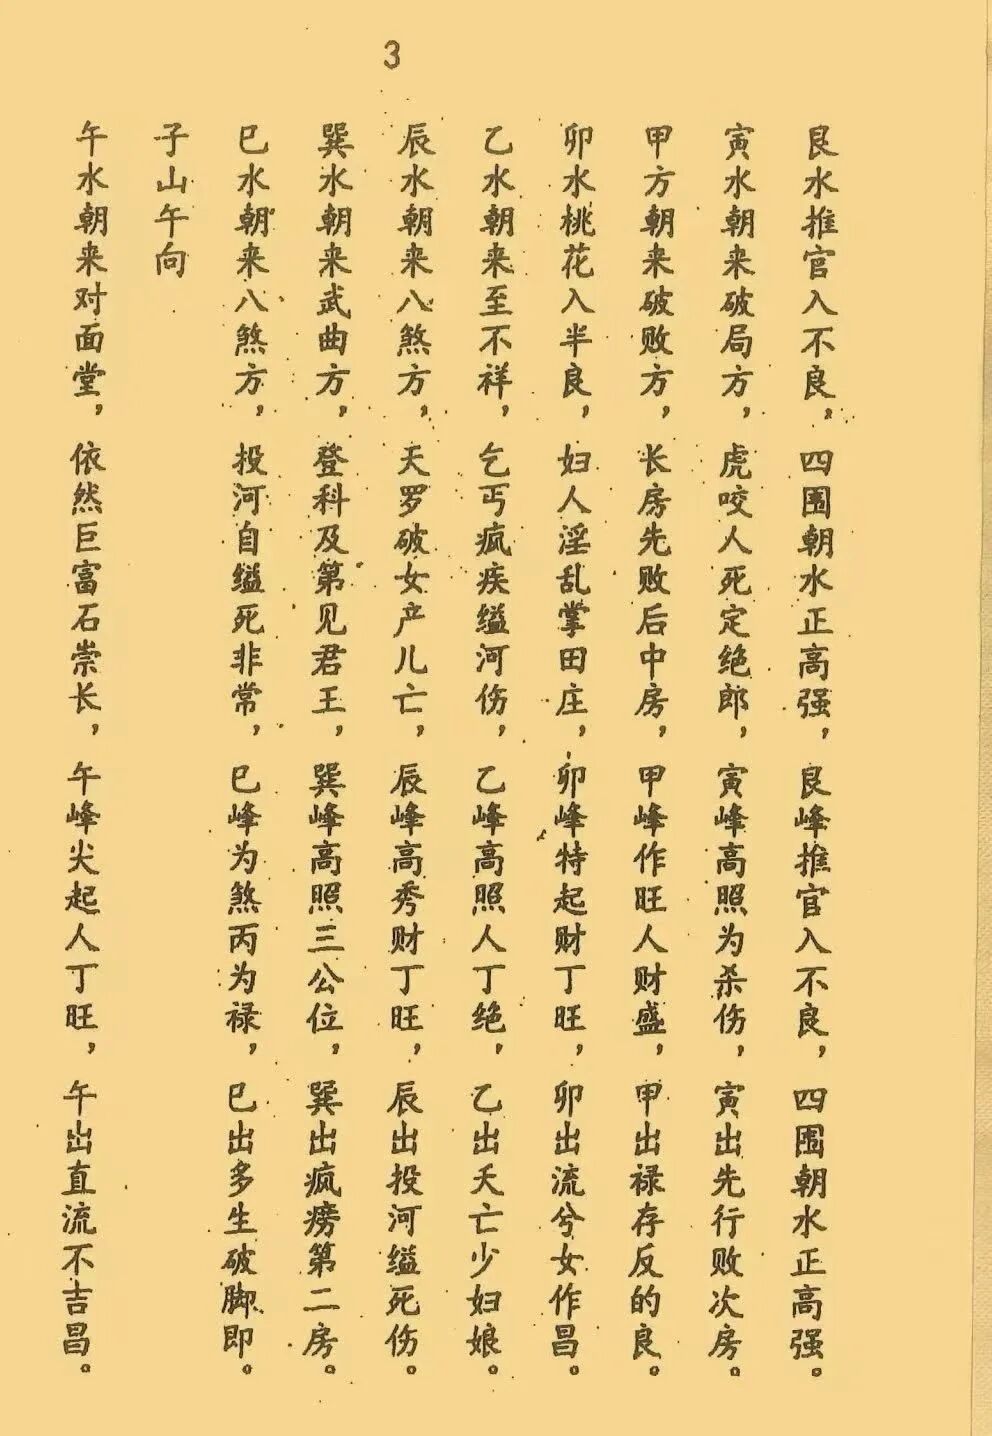 3
艮水推官入不良，四围朝水正高强，艮峰推官入不良，四围朝水正高强。
寅水朝来破局方，虎咬人死定绝郎，寅峰高照为杀伤，寅出先行败次房。
甲方朝来破败方，长房先败后中房，甲峰作旺人财盛，甲出禄存反的良。
卯水桃花入半良，妇人淫乱掌田庄，卯峰特起财丁旺，卯出流兮女作昌。
乙水朝来至不祥，乞丐疯疾缢河伤，乙峰高照人丁绝，乙出夭亡少妇娘。
辰水朝来八煞方，天罗破女产儿亡，辰峰高秀财丁旺，辰出投河缢死伤。
巽水朝来武曲方，登科及第见君王，巽峰高照三公位，巽出疯痨第二房。
巳水朝来八煞方，投河自缢死非常，巳峰为煞丙为禄，巳出多生破脚即。
子山午向
午水朝来对面堂，依然巨富石崇长，午峰尖起人丁旺，午出直流不吉昌。